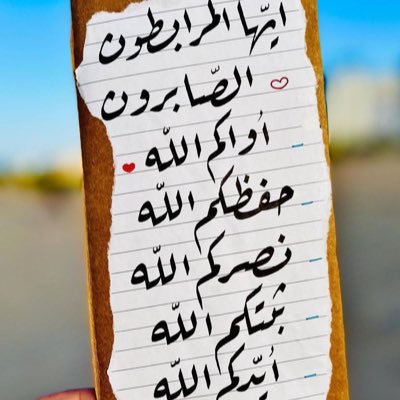 ايّها المرابطون
الصّابرون
أواكم اللّه
حفظكم اللّه
نصركم اللّه
ثبتكم اللّه
أيّدكم اللّه